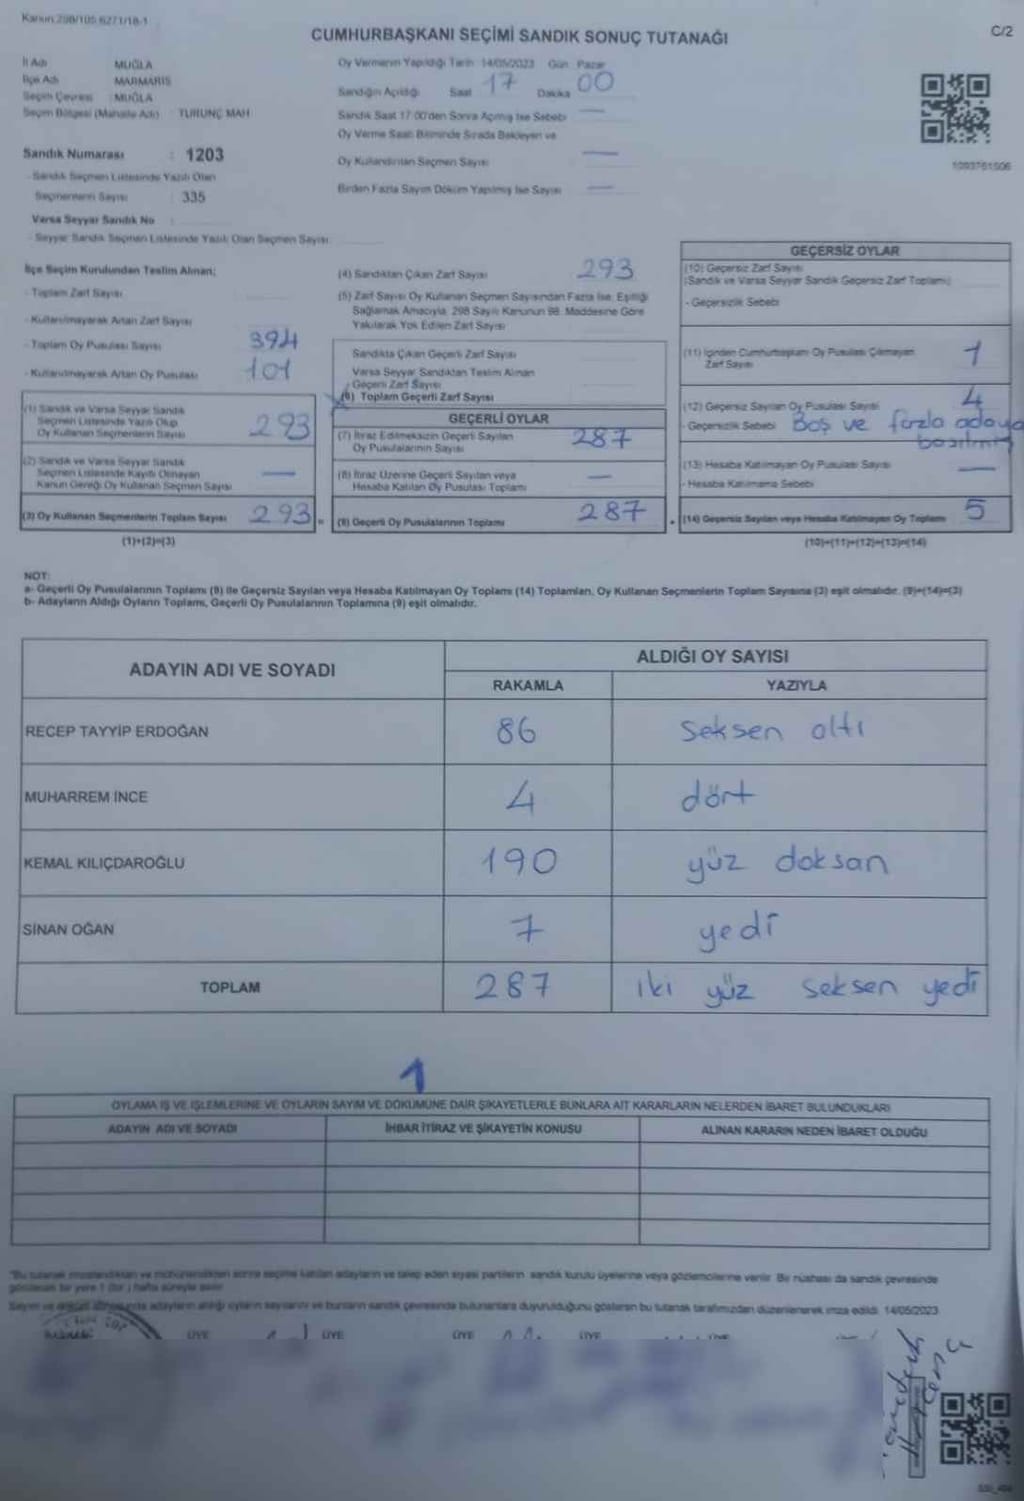 Kanun 298/105 6271/18-1
CUMHURBAŞKANI SEÇİMİ SANDIK SONUÇ TUTANAĞI
C/2
İl Adı MUĞLA
İlçe Adı MARMARİS
Seçim Çevresi : MUĞLA
Seçim Bölgesi (Mahalle Adı) : TURUNÇ MAH
Sandık Numarası : 1203
- Sandık Seçmen Listesinde Yazılı Olan
Seçmenlerin Sayısı : 335
Varsa Seyyar Sandık No :
- Seyyar Sandık Seçmen Listesinde Yazılı Olan Seçmen Sayısı:
Oy Vermenin Yapıldığı Tarih 14/05/2023 Gün Pazar
Sandığın Açıldığı Saat 17 Dakika 00
Sandık Saat 17 00'den Sonra Açılmış İse Sebebi —
Oy Verme Saati Bitiminde Sırada Bekleyen ve
Oy Kullandırılan Seçmen Sayısı —
Birden Fazla Sayım Döküm Yapılmış İse Sayısı —
1093761506
İlçe Seçim Kurulundan Teslim Alınan;
- Toplam Zarf Sayısı
- Kullanılmayarak Artan Zarf Sayısı
- Toplam Oy Pusulası Sayısı 394
- Kullanılmayarak Artan Oy Pusulası 101
(1) Sandık ve Varsa Seyyar Sandık
Seçmen Listesinde Yazılı Olup
Oy Kullanan Seçmenlerin Sayısı 293
(2) Sandık ve Varsa Seyyar Sandık
Seçmen Listesinde Kayıtlı Olmayan
Kanun Gereği Oy Kullanan Seçmen Sayısı —
(3) Oy Kullanan Seçmenlerin Toplam Sayısı 293
(1)+(2)=(3)
(4) Sandıktan Çıkan Zarf Sayısı 293
(5) Zarf Sayısı Oy Kullanan Seçmen Sayısından Fazla İse; Eşitliği
Sağlamak Amacıyla, 298 Sayılı Kanunun 98. Maddesine Göre
Yakılarak Yok Edilen Zarf Sayısı
Sandıkta Çıkan Geçerli Zarf Sayısı
Varsa Seyyar Sandıktan Teslim Alınan
Geçerli Zarf Sayısı
(6) Toplam Geçerli Zarf Sayısı
GEÇERLİ OYLAR
(7) İtiraz Edilmeksizin Geçerli Sayılan
Oy Pusulalarının Sayısı 287
(8) İtiraz Üzerine Geçerli Sayılan veya
Hesaba Katılan Oy Pusulası Toplamı —
(9) Geçerli Oy Pusulalarının Toplamı 287
GEÇERSİZ OYLAR
(10) Geçersiz Zarf Sayısı
(Sandık ve Varsa Seyyar Sandık Geçersiz Zarf Toplamı)
- Geçersizlik Sebebi
(11) İçinden Cumhurbaşkanı Oy Pusulası Çıkmayan
Zarf Sayısı 1
(12) Geçersiz Sayılan Oy Pusulası Sayısı 4
- Geçersizlik Sebebi Boş ve fazla adaya
basılmış
(13) Hesaba Katılmayan Oy Pusulası Sayısı —
- Hesaba Katılmama Sebebi
(14) Geçersiz Sayılan veya Hesaba Katılmayan Oy Toplamı 5
(10)+(11)+(12)+(13)=(14)
NOT:
a- Geçerli Oy Pusulalarının Toplamı (9) ile Geçersiz Sayılan veya Hesaba Katılmayan Oy Toplamı (14) Toplamları, Oy Kullanan Seçmenlerin Toplam Sayısına (3) eşit olmalıdır. (9)+(14)=(3)
b- Adayların Aldığı Oyların Toplamı, Geçerli Oy Pusulalarının Toplamına (9) eşit olmalıdır.
ADAYIN ADI VE SOYADI ALDIĞI OY SAYISI
RAKAMLA YAZIYLA
RECEP TAYYİP ERDOĞAN 86 seksen altı
MUHARREM İNCE 4 dört
KEMAL KILIÇDAROĞLU 190 yüz doksan
SİNAN OĞAN 7 yedi
TOPLAM 287 iki yüz seksen yedi
1
OYLAMA İŞ VE İŞLEMLERİNE VE OYLARIN SAYIM VE DÖKÜMÜNE DAİR ŞİKAYETLERLE BUNLARA AİT KARARLARIN NELERDEN İBARET BULUNDUKLARI
ADAYIN ADI VE SOYADI İHBAR İTİRAZ VE ŞİKAYETİN KONUSU ALINAN KARARIN NEDEN İBARET OLDUĞU
"Bu tutanak imzalandıktan ve mühürlendikten sonra seçime katılan adayların ve talep eden siyasi partilerin sandık kurulu üyelerine veya gözlemcilerine verilir. Bir nüshası da sandık çevresinde
görülecek bir yere 1 (bir) hafta süreyle asılır.
adayların aldığı oyların sayılarını ve bunların sandık çevresinde bulunanlara duyurulduğunu gösteren bu tutanak tarafımızdan düzenlenerek imza edildi. 14/05/2023
ÜYE ÜYE ÜYE ÜYE